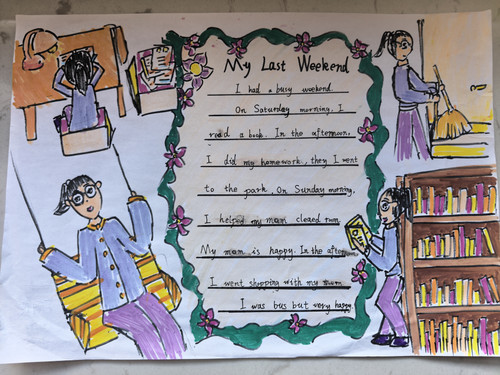 My Last Weekend
I had a busy weekend.
On Saturday morning, I
read a book. In the afternoon,
I did my homework, they I went
to the park. On Sunday morning,
I helped my mum cleaed rum,
My mum is happy. In the afternoon
I went shopping with my mum.
I was bus but very happy.